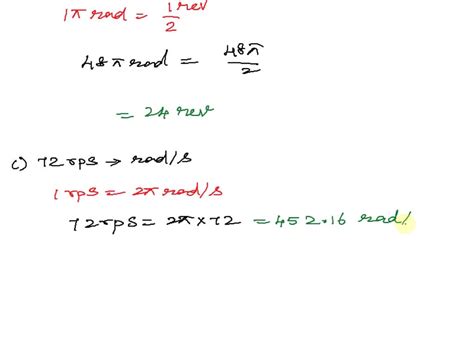 1π rad = 1 rev / 2
48π rad = 48π / 2
= 24 rev
c) 72 rps → rad/s
1 rps = 2π rad/s
72 rps = 2π × 72 = 452.16 rad/